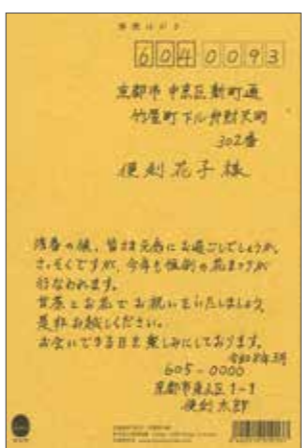 郵便はがき
604 0093
京都市中京区新町通
竹屋町下ル弁財天町
302番
便利花子様
陽春の候、皆さま元気にお過ごしでしょうか。
さっそくですが、今年も恒例の花まつりが
行なわれます。
甘茶とお花でお祝いをいたしましょう。
是非お越しください。
お会いできる日を楽しみにしております。
令和8年3月
605-0000
京都市東山区1-1
便利太郎